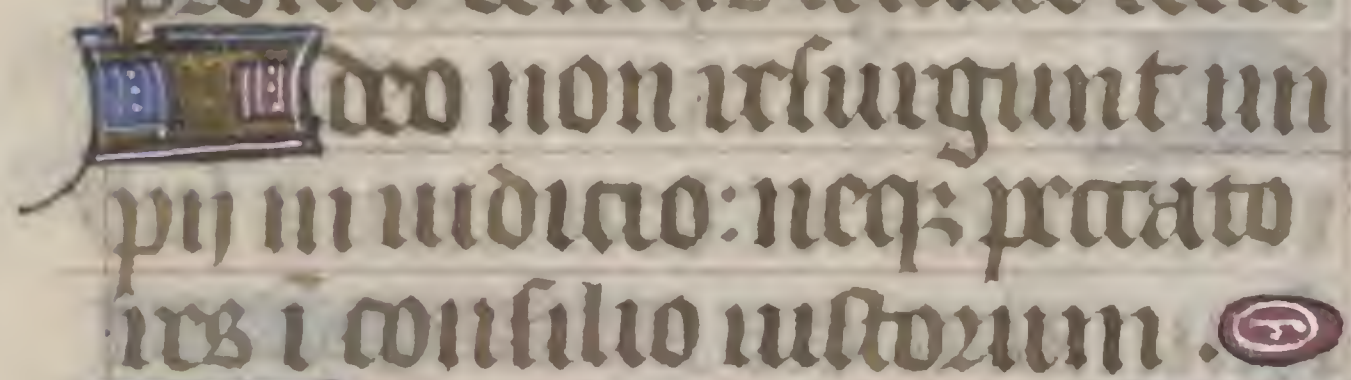 Ideo non resurgunt im
pij in iudicio: neq; peccato
res i consilio iustorum .